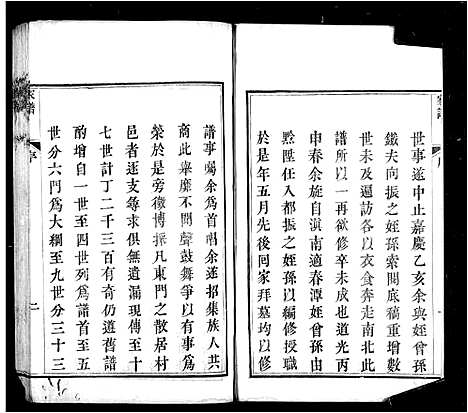 世事遂中止嘉慶乙亥余與姪曾孫
鐵夫向振之姪孫索閱底稿重增數
世未及遍訪各以衣食奔走南北此
譜所以一再欲修卒未成也道光丙
申春余旋自滇南適春潭姪曾孫由
黔陞任入覲姪孫以編修授職
於是年五月先後回家拜墓均以修
譜事囑余爲首唱余遂招集族人共
商此舉靡不聞聲鼓舞争以有事爲
榮於是旁徵博採凡東門之散居村
邑者支尋派求俱無遺漏現傳至十
七世計丁二千三百有奇仍遵舊譜
酌增自一世至四世列爲譜首至五
世分六門爲大綱至九世分三十三
家譜
序
二
家譜
序